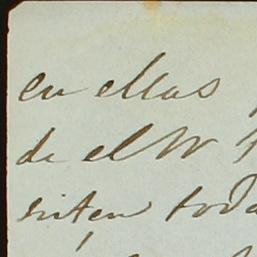 en ellas
de el W
siten toda